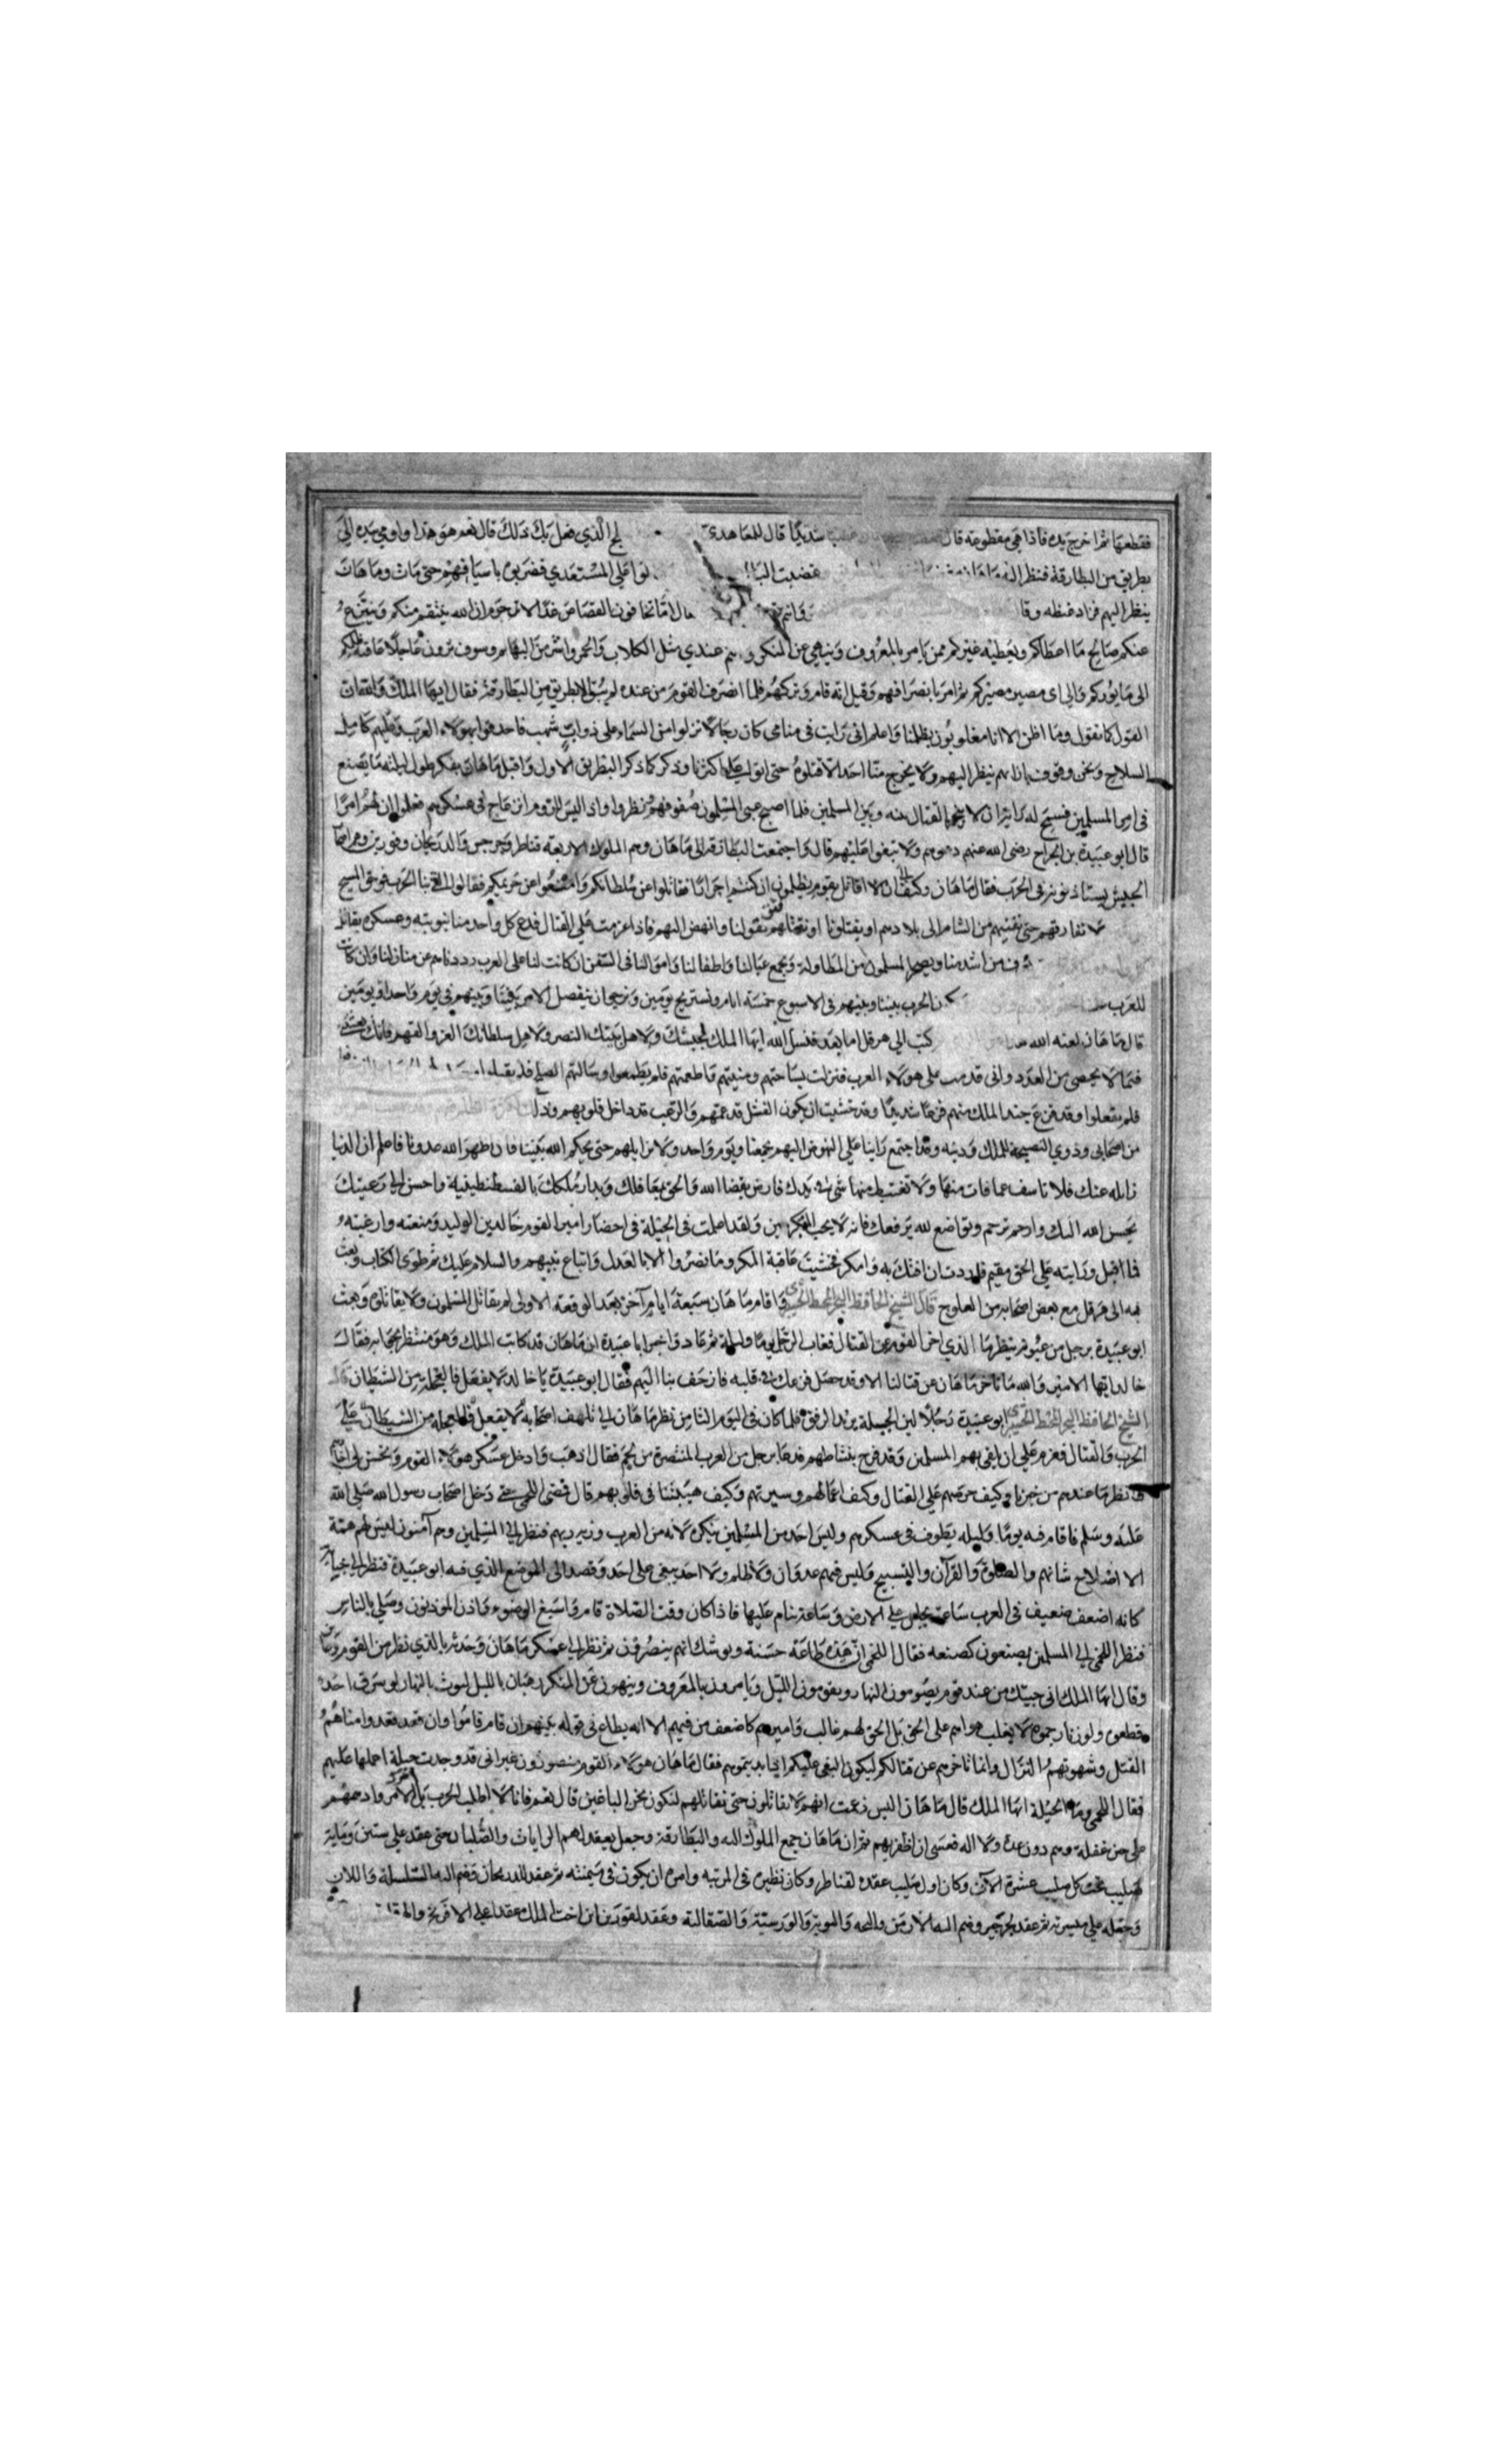 فقطعها ثم اخرج يده فاذا هي مقطوعة قال شديدا قال للمعاهدي الذي فعل بك ذلك قال نعم هو هذا واومي بيده الي
بطريق من البطارقة فنظر اليه ماهان غضبت علي المستعدي فضربوه باسيافهم حتي مات وماهان
ينظر اليهم فزاد غيظه وقا اما تخافون القصاص غدا الا ترحم ان الله ينتقم منكم وينتزع
عنكم صالح ما اعطاكم ويعطيه غيركم ممن يامر بالمعروف وينهي عن المنكر و عندي مثل الكلاب والحمر واشر من البهايم وسوف ترون عاجلا عاقبة
الي ما يؤدكم والي اي مصير مصيركم ثم امر بانصرافهم وقيل انه قام وتركهم فلما انصرف القوم من عنده لم يبق الا بطريق من البطارقة فقال ايها الملك
القول كما تقول وما اظن الا انا مغلوبون بظلمنا واعلم اني رايت في منامي كان رجالا نزلوا من السماء علي ذواب شهب فاحدقوا بهولاء العرب وعليهم كامل
السلاح ونحن وقوف بازائهم ينظر اليهم ولا يخرج منا احد الا قتلوه حتي اتوا علي اكثرنا وذكر كما ذكر البطريق الاول واقبل ماهان يفكر طول ليلته ما يصنع
في امر المسلمين القتال بينه وبين المسلمين فلما اصبح عبي المسلمون صفوفهم نظروا واذا ليس للروم انزعاج في عسكرهم فعلموا ان لهم امرا
قال ابو عبيدة بن الجراح رضي الله عنهم دعوهم ولا تبغوا عليهم قال واجتمعت البطارقة الي ماهان وهم الملوك الاربعة قناطر وجرجس والديرجان وقورين
الجيش يستاذنونه في الحرب فقال ماهان وكيف لا اقاتل بقوم يظلمون ان كنتم احرارا فقاتلوا عن سلطانكم وامنعوا عن حريمكم فقالوا الحرب فوحق المسيح
لا نفارقهم حتي ننفيهم من الشام الي بلادهم او يقتلونا او نقتلهم بقولنا وانهض اليهم فاذا عزمت علي القتال فدع كل واحد منا بنوبته وعسكره يقاتل
من اشد منا ويضجر المسلمون من المطاولة ونجمع عيالنا واطفالنا واموالنا في السفن ان كانت لنا علي العرب رددناهم عن منازلنا وان كانت
للعرب الحرب بيننا وبينهم في الاسبوع خمسة ايام ونستريح يومين ونرجي ان ينفصل الامر بيننا وبينهم في يوم واحد او يومين
قال ماهان لعنه الله كتب الي هرقل اما بعد فنسل الله ايها الملك لجيشك ولاهل بيتك النصر ولاهل سلطانك العز والقهر فانك
فيما لا يحصي من العدد واني قدمت علي هولاء العرب فنزلت بساحتهم ومنيتهم فاطعمتهم فلم يطمعوا وسالتهم الصلح فلم يقبلوا
فلم يفعلوا وقد فزع جند الملك منهم فزعا شديدا وقد خشيت ان يكون الفشل قد عمهم والرعب قد داخل قلوبهم وذلك
من اصحابي وذوي النصيحة للملك ودينه وقد اجتمع راينا علي النهوض اليهم بجمعنا ويوم واحد ولا نزايلهم حتي يحكم الله بيننا فان اظهر الله عدونا فاعلم ان الدنيا
زايله عنك فلا تاسف عما فات منها ولا تغتبط منها شي في يدك فارض بقضا الله والحق بمعاقلك وبدار ملكك بالقسطنطينية واحسن الي رعيتك
يحسن الله اليك وارحم ترحم وتواضع لله يرفعك فانه لا يحب المتكبرين ولقد عملت في الحيلة في احضار امير القوم خالد بن الوليد ومنعته وارغبته
فما اقبل ورايته علي الحق مقيم فاردت ان افتك به وامكر فخشيت عاقبة المكر وما نصروا الا بالعدل واتباع نبيهم والسلام عليك ثم طوي الكتاب وبعث
به الي هرقل مع بعض اصحابه من العلوج قال الشيخ الحافظ واقام ماهان سبعة ايام آخر بعد الوقعة الاولي لم يقاتل المسلمون ولا يقاتلوه وبعث
ابو عبيدة برجل من عيونه ينظر ما الذي اخر القوم عن القتال فغاب الرجل يوما وليلة ثم عاد واخبر ابا عبيدة ان ماهان قد كاتب الملك وهو منتظر لجوابه فقال
خالد ايها الامير والله ما تاخر ماهان عن قتالنا الا وقد حصل فزعك في قلبه فازحف بنا اليهم فقال ابو عبيدة يا خالد لا يفعل فالعجلة من الشيطان قال
الشيخ الحافظ ابو عبيدة رجلا لين الجبلة يريد الرفق فلما كان في اليوم الثامن نظر ماهان الي تلهف اصحابه علي
الحرب والقتال فعزم علي ان يلقي بهم المسلمين وقد فرح بنشاطهم فدعا برجل من العرب المتنصرة من لخم فقال اذهب وادخل عسكر هولاء القوم وتجسس لي
فانظر ما عندهم من خبرنا وكيف حرصهم علي القتال وكيف اعمالهم وسيرتهم وكيف هيبتنا في قلوبهم قال فمضي اللخمي حتي دخل اصحاب رسول الله صلي الله
عليه وسلم فاقام فيه يوما وليله يطوف في عسكرهم وليس احد من المسلمين ينكره لانه من العرب وزيه زيهم فنظر الي المسلمين وهم آمنون ليس لهم همة
الا اصلاح شانهم والصلوة والقرآن والتسبيح وليس فيهم عدوان ولا ظلم ولا احد يبغي علي احد وقصد الي الموضع الذي فيه ابو عبيدة فنظر الي
كانه اضعف ضعيف في العرب ساعة يجلس علي الارض وساعة ينام عليها فاذا كان وقت الصلاة قام واسبغ الوضوء واذن الموذنون وصلي بالناس
فنظر اللخمي الي المسلمين يصنعون كصنعه فقال اللخمي ان هذه طاعة حسنة ويوشك انهم ينصرون ثم نظر الي عسكر ماهان وحدثه بالذي نظر من القوم
وقال ايها الملك اني جيتك من عند قوم يصومون النهار ويقومون الليل ويامرون بالمعروف وينهون عن المنكر رهبان بالليل ليوث بالنهار لو سرق احد
قطعوه ولو زنا رجموه لا يغلب هواهم علي الحق بل الحق لهم غالب واميرهم كاضعف من فيهم الا انه يطاع في قوله بينهم ان قام قاموا وان قعد قعدوا مناهم
القتل وشهوتهم النزال وانما تاخرهم عن قتالكم ليكون البغي عليكم فقال ماهان هولاء القوم منصورون غير اني قد وجدت حيلة اعملها عليهم
فقال اللخمي وما الحيلة ايها الملك قال ماهان اليس زعمت انهم لا يقاتلون حتي نقاتلهم لنكون نحن الباغين قال نعم فانا لا اطلب الحرب بل
علي حين غفلة وهم دون عدة ولا اله فعسي ان اظفر بهم ثم ان ماهان جمع الملوك اليه والبطارقة وجعل يعقد لهم الرايات والصلبان حتي عقد علي ستين وماية
صليب تحت كل صليب عشرة الآف وكان اول صليب عقده لقناطر وكان نظيره في المرتبه وامره ان يكون في ميمنته ثم عقد للديرجان وضم اليه السلسلة واللان
وجعله علي ميسرته ثم عقد لجرجير وضم اليه الارمن والنوبة والروسية والصقالبة وعقد لقورين ابن اخت الملك عقدا علي الافرنج